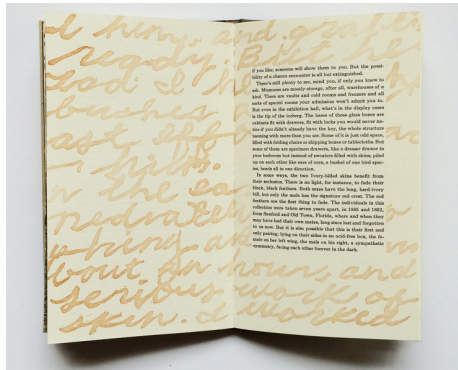 I hung and
ready. B
God I he
as off
Min.
the ea
bout an hours and
serious work of
skin. I worked
if you like; someone will show them to you. But the possi-
bility of a chance encounter is all but extinguished.
There's still plenty to see, mind you, if only you knew to
ask. Museums are mostly storage, after all, warehouses of a
kind. There are vaults and cold rooms and freezers and all
sorts of special rooms your admission won't admit you to.
But even in the exhibition hall, what's in the display cases
is the tip of the iceberg. The bases of those glass boxes are
cabinets fit with drawers, fit with locks you would never no-
tice if you didn't already have the key, the whole structure
teeming with more than you see. Some of it is just odd space,
filled with folding chairs or shipping boxes or tablecloths. But
some of them are specimen drawers, like a dresser drawer in
your bedroom but instead of sweaters filled with skins, piled
up on each other like ears of corn, a bushel of one bird spec-
ies, heads all in one direction.
In some ways, the two Ivory-billed skins benefit from
their seclusion. There is no light, for instance, to fade their
black, black feathers. Both sexes have the long, hard ivory
bill, but only the male has the signature red crest. The red
feathers are the first thing to fade. The individuals in this
collection were taken seven years apart, in 1885 and 1892,
from Sanford and Old Town, Florida, where and when they
may have had their own mates, long since lost and forgotten
to us now. But it is also possible that this is their first and
only pairing: lying on their sides in an acid-free box, the fe-
male on her left wing, the male on his right, a sympathetic
symmetry, facing each other forever in the dark.